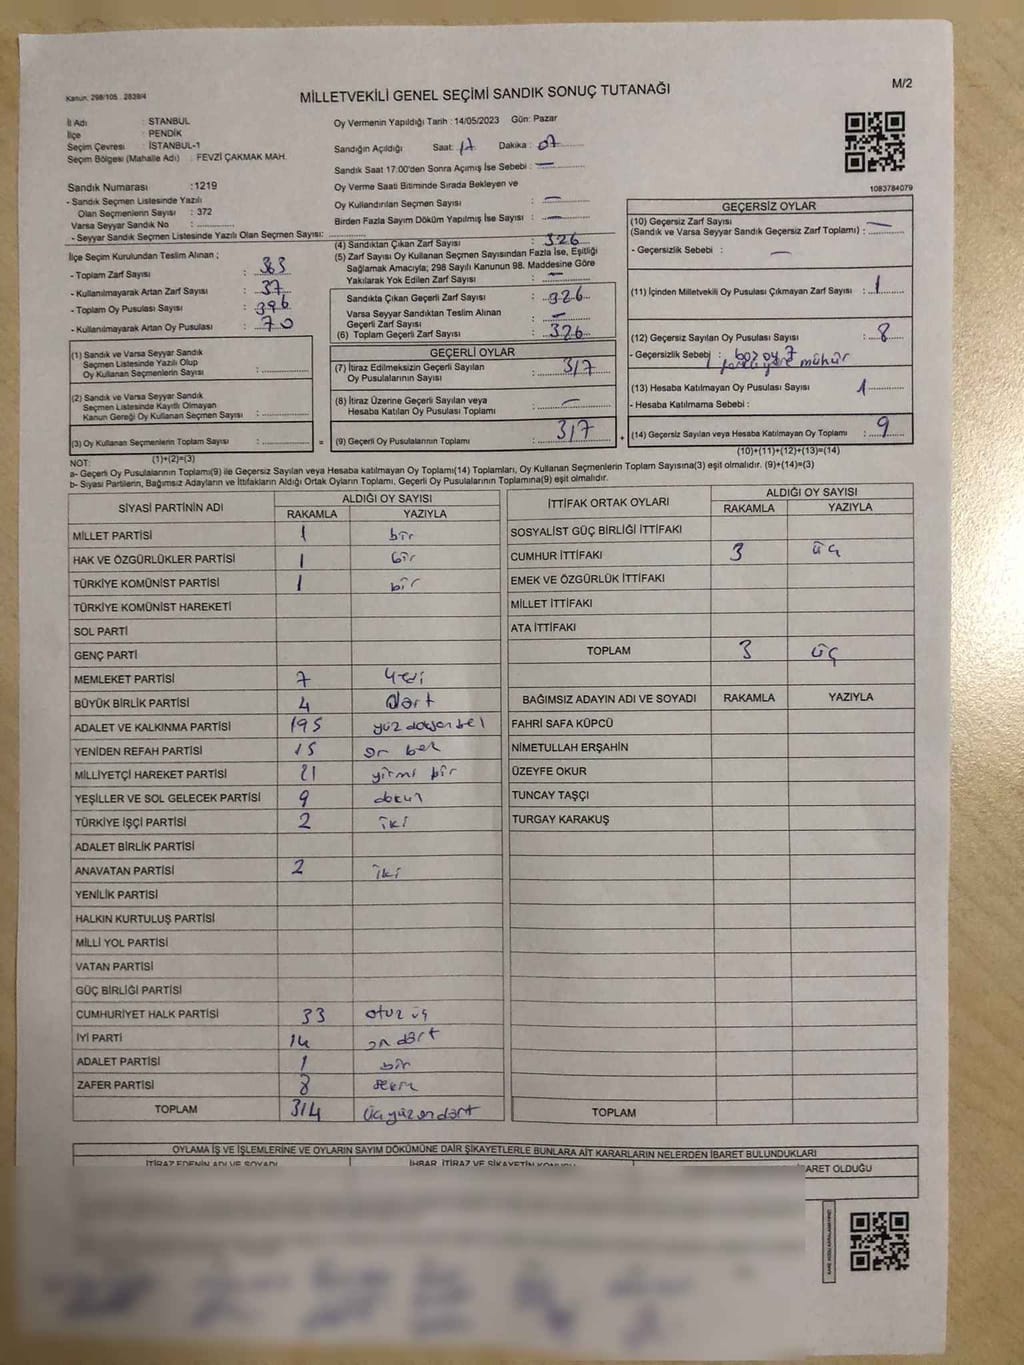 Kanun: 298/105 , 2839/4
MİLLETVEKİLİ GENEL SEÇİMİ SANDIK SONUÇ TUTANAĞI
M/2
İl Adı : STANBUL
İlçe : PENDİK
Seçim Çevresi : İSTANBUL-1
Seçim Bölgesi (Mahalle Adı) : FEVZİ ÇAKMAK MAH.
Oy Vermenin Yapıldığı Tarih : 14/05/2023 Gün: Pazar
Sandığın Açıldığı Saat: 17 Dakika : 07
Sandık Saat 17:00'den Sonra Açımış İse Sebebi : —
Oy Verme Saati Bitiminde Sırada Bekleyen ve
Oy Kullandırılan Seçmen Sayısı : —
Birden Fazla Sayım Döküm Yapılmış İse Sayısı : —
1083784079
Sandık Numarası :1219
- Sandık Seçmen Listesinde Yazılı
Olan Seçmenlerin Sayısı : 372
Varsa Seyyar Sandık No :
- Seyyar Sandık Seçmen Listesinde Yazılı Olan Seçmen Sayısı:
İlçe Seçim Kurulundan Teslim Alınan ;
- Toplam Zarf Sayısı : 363
- Kullanılmayarak Artan Zarf Sayısı : 37
- Toplam Oy Pusulası Sayısı : 396
- Kullanılmayarak Artan Oy Pusulası : 70
(1) Sandık ve Varsa Seyyar Sandık
Seçmen Listesinde Yazılı Olup
Oy Kullanan Seçmenlerin Sayısı :
(2) Sandık ve Varsa Seyyar Sandık
Seçmen Listesinde Kayıtlı Olmayan
Kanun Gereği Oy Kullanan Seçmen Sayısı :
(3) Oy Kullanan Seçmenlerin Toplam Sayısı :
(1)+(2)=(3)
(4) Sandıktan Çıkan Zarf Sayısı : 326
(5) Zarf Sayısı Oy Kullanan Seçmen Sayısından Fazla İse, Eşitliği
Sağlamak Amacıyla; 298 Sayılı Kanunun 98. Maddesine Göre
Yakılarak Yok Edilen Zarf Sayısı : —
Sandıkta Çıkan Geçerli Zarf Sayısı : 326
Varsa Seyyar Sandıktan Teslim Alınan
Geçerli Zarf Sayısı : —
(6) Toplam Geçerli Zarf Sayısı : 326
GEÇERLİ OYLAR
(7) İtiraz Edilmeksizin Geçerli Sayılan
Oy Pusulalarının Sayısı : 317
(8) İtiraz Üzerine Geçerli Sayılan veya
Hesaba Katılan Oy Pusulası Toplamı : —
= (9) Geçerli Oy Pusulalarının Toplamı : 317 +
GEÇERSİZ OYLAR
(10) Geçersiz Zarf Sayısı
(Sandık ve Varsa Seyyar Sandık Geçersiz Zarf Toplamı) : —
- Geçersizlik Sebebi : —
(11) İçinden Milletvekili Oy Pusulası Çıkmayan Zarf Sayısı : 1
(12) Geçersiz Sayılan Oy Pusulası Sayısı : 8
- Geçersizlik Sebebi : boş oy 7
1 mühür
(13) Hesaba Katılmayan Oy Pusulası Sayısı 1
- Hesaba Katılmama Sebebi :
(14) Geçersiz Sayılan veya Hesaba Katılmayan Oy Toplamı : 9
(10)+(11)+(12)+(13)=(14)
NOT:
a- Geçerli Oy Pusulalarının Toplamı(9) ile Geçersiz Sayılan veya Hesaba katılmayan Oy Toplamı(14) Toplamları, Oy Kullanan Seçmenlerin Toplam Sayısına(3) eşit olmalıdır. (9)+(14)=(3)
b- Siyasi Partilerin, Bağımsız Adayların ve İttifakların Aldığı Ortak Oyların Toplamı, Geçerli Oy Pusulalarının Toplamına(9) eşit olmalıdır.
SİYASİ PARTİNİN ADI ALDIĞI OY SAYISI
RAKAMLA YAZIYLA
MİLLET PARTİSİ 1 bir
HAK VE ÖZGÜRLÜKLER PARTİSİ 1 bir
TÜRKİYE KOMÜNİST PARTİSİ 1 bir
TÜRKİYE KOMÜNİST HAREKETİ
SOL PARTİ
GENÇ PARTİ
MEMLEKET PARTİSİ 7 yedi
BÜYÜK BİRLİK PARTİSİ 4 dört
ADALET VE KALKINMA PARTİSİ 195 yüz doksan beş
YENİDEN REFAH PARTİSİ 15 on beş
MİLLİYETÇİ HAREKET PARTİSİ 21 yirmi bir
YEŞİLLER VE SOL GELECEK PARTİSİ 9 dokuz
TÜRKİYE İŞÇİ PARTİSİ 2 iki
ADALET BİRLİK PARTİSİ
ANAVATAN PARTİSİ 2 iki
YENİLİK PARTİSİ
HALKIN KURTULUŞ PARTİSİ
MİLLİ YOL PARTİSİ
VATAN PARTİSİ
GÜÇ BİRLİĞİ PARTİSİ
CUMHURİYET HALK PARTİSİ 33 otuz üç
İYİ PARTİ 14 on dört
ADALET PARTİSİ 1 bir
ZAFER PARTİSİ 8 sekiz
TOPLAM 314 üçyüz on dört
İTTİFAK ORTAK OYLARI ALDIĞI OY SAYISI
RAKAMLA YAZIYLA
SOSYALİST GÜÇ BİRLİĞİ İTTİFAKI
CUMHUR İTTİFAKI 3 üç
EMEK VE ÖZGÜRLÜK İTTİFAKI
MİLLET İTTİFAKI
ATA İTTİFAKI
TOPLAM 3 üç
BAĞIMSIZ ADAYIN ADI VE SOYADI RAKAMLA YAZIYLA
FAHRİ SAFA KÜPCÜ
NİMETULLAH ERŞAHİN
ÜZEYFE OKUR
TUNCAY TAŞÇI
TURGAY KARAKUŞ
TOPLAM
OYLAMA İŞ VE İŞLEMLERİNE VE OYLARIN SAYIM DÖKÜMÜNE DAİR ŞİKAYETLERLE BUNLARA AİT KARARLARIN NELERDEN İBARET BULUNDUKLARI
İTİRAZ EDENİN ADI VE SOYADI İHBAR, İTİRAZ VE ŞİKAYETİN KONUSU ARET OLDUĞU